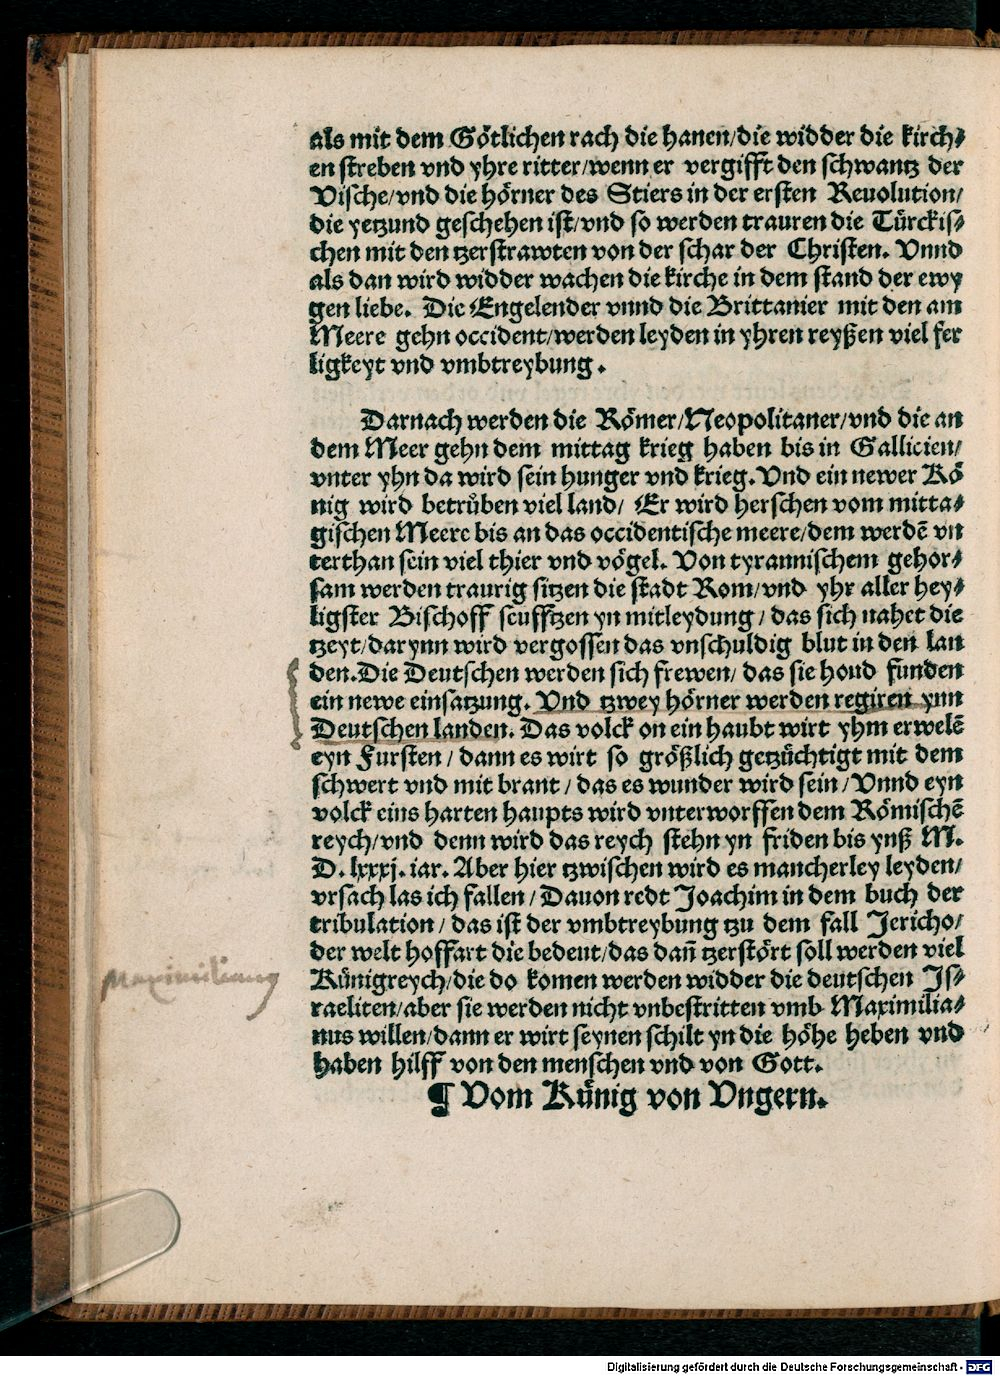 als mit dem Götlichen rach die hanen/die widder die kirch⸗
en streben vnd yhre ritter/wenn er vergifft den schwantz der
Vische/vnd die hörner des Stiers in der ersten Reuolution/
die yetzund geschehen ist/vnd so werden trauren die Türckis⸗
chen mit den tzerstrawten von der schar der Christen. Vnnd
als dan wird widder wachen die kirche in dem stand der ewy
gen liebe. Die Engelender vnnd die Brittanier mit den am
Meere gehn occident/werden leyden in yhren reyßen viel fer
ligkeyt vnd vmbtreybung.
Darnach werden die Römer/Neopolitaner/vnd die an
dem Meer gehn dem mittag krieg haben bis in Gallicien/
vnter yhn da wird sein hunger vnd krieg. Vnd ein newer Kö
nig wird betrůben viel land/ Er wird herschen vom mitta⸗
gischen Meere bis an das occidentische meere/dem werdē vn
terthan sein viel thier vnd vögel. Von tyrannischem gehor⸗
sam werden traurig sitzen die stadt Rom/vnd yhr aller hey⸗
ligster Bischoff seufftzen yn mitleydung/das sich nahet die
tzeyt/darynn wird vergossen das vnschuldig blut in den lan
den.Die Deutschen werden sich frewen/das sie hond funden
ein newe einsatzung. Vnd tzwey hörner werden regiren ynn
Deutschen landen. Das volck on ein haubt wirt yhm erwelē
eyn Fursten/dann es wirt so größlich getzüchtigt mit dem
schwert vnd mit brant/das es wunder wird sein/Vnnd eyn
volck eins harten haupts wird vnterworffen dem Römischē
reych/vnd denn wird das reych stehn yn friden bis ynß M.
D. lxxxj. iar. Aber hier tzwischen wird es mancherley leyden/
vrsach las ich fallen/Dauon redt Joachim in dem buch der
tribulation/das ist der vmbtreybung tzu dem fall Jericho/
der welt hoffart die bedeut/das dan̄ tzerstört soll werden viel
Maximilianus
Künigreych/die do komen werden widder die deutschen Is⸗
raeliten/aber sie werden nicht vnbestritten vmb Maximilia⸗
nus willen/dann er wirt seynen schilt yn die höhe heben vnd
haben hilff von den menschen vnd von Gott.
¶ Vom Künig von Vngern.
Digitalisierung gefördert durch die Deutsche Forschungsgemeinschaft - DFG